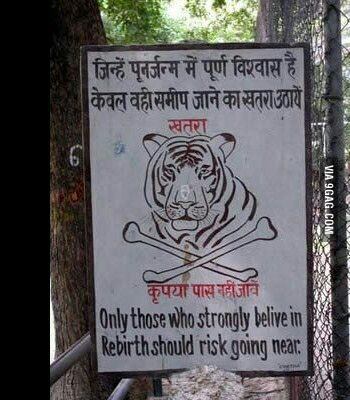 जिन्हें पुनर्जन्म में पूर्ण विश्वास है
केवल वही समीप जाने का खतरा उठायें
खतरा
कृपया पास नहीं जावें
Only those who strongly belive in
Rebirth should risk going near.
6
VIA 9GAG.COM